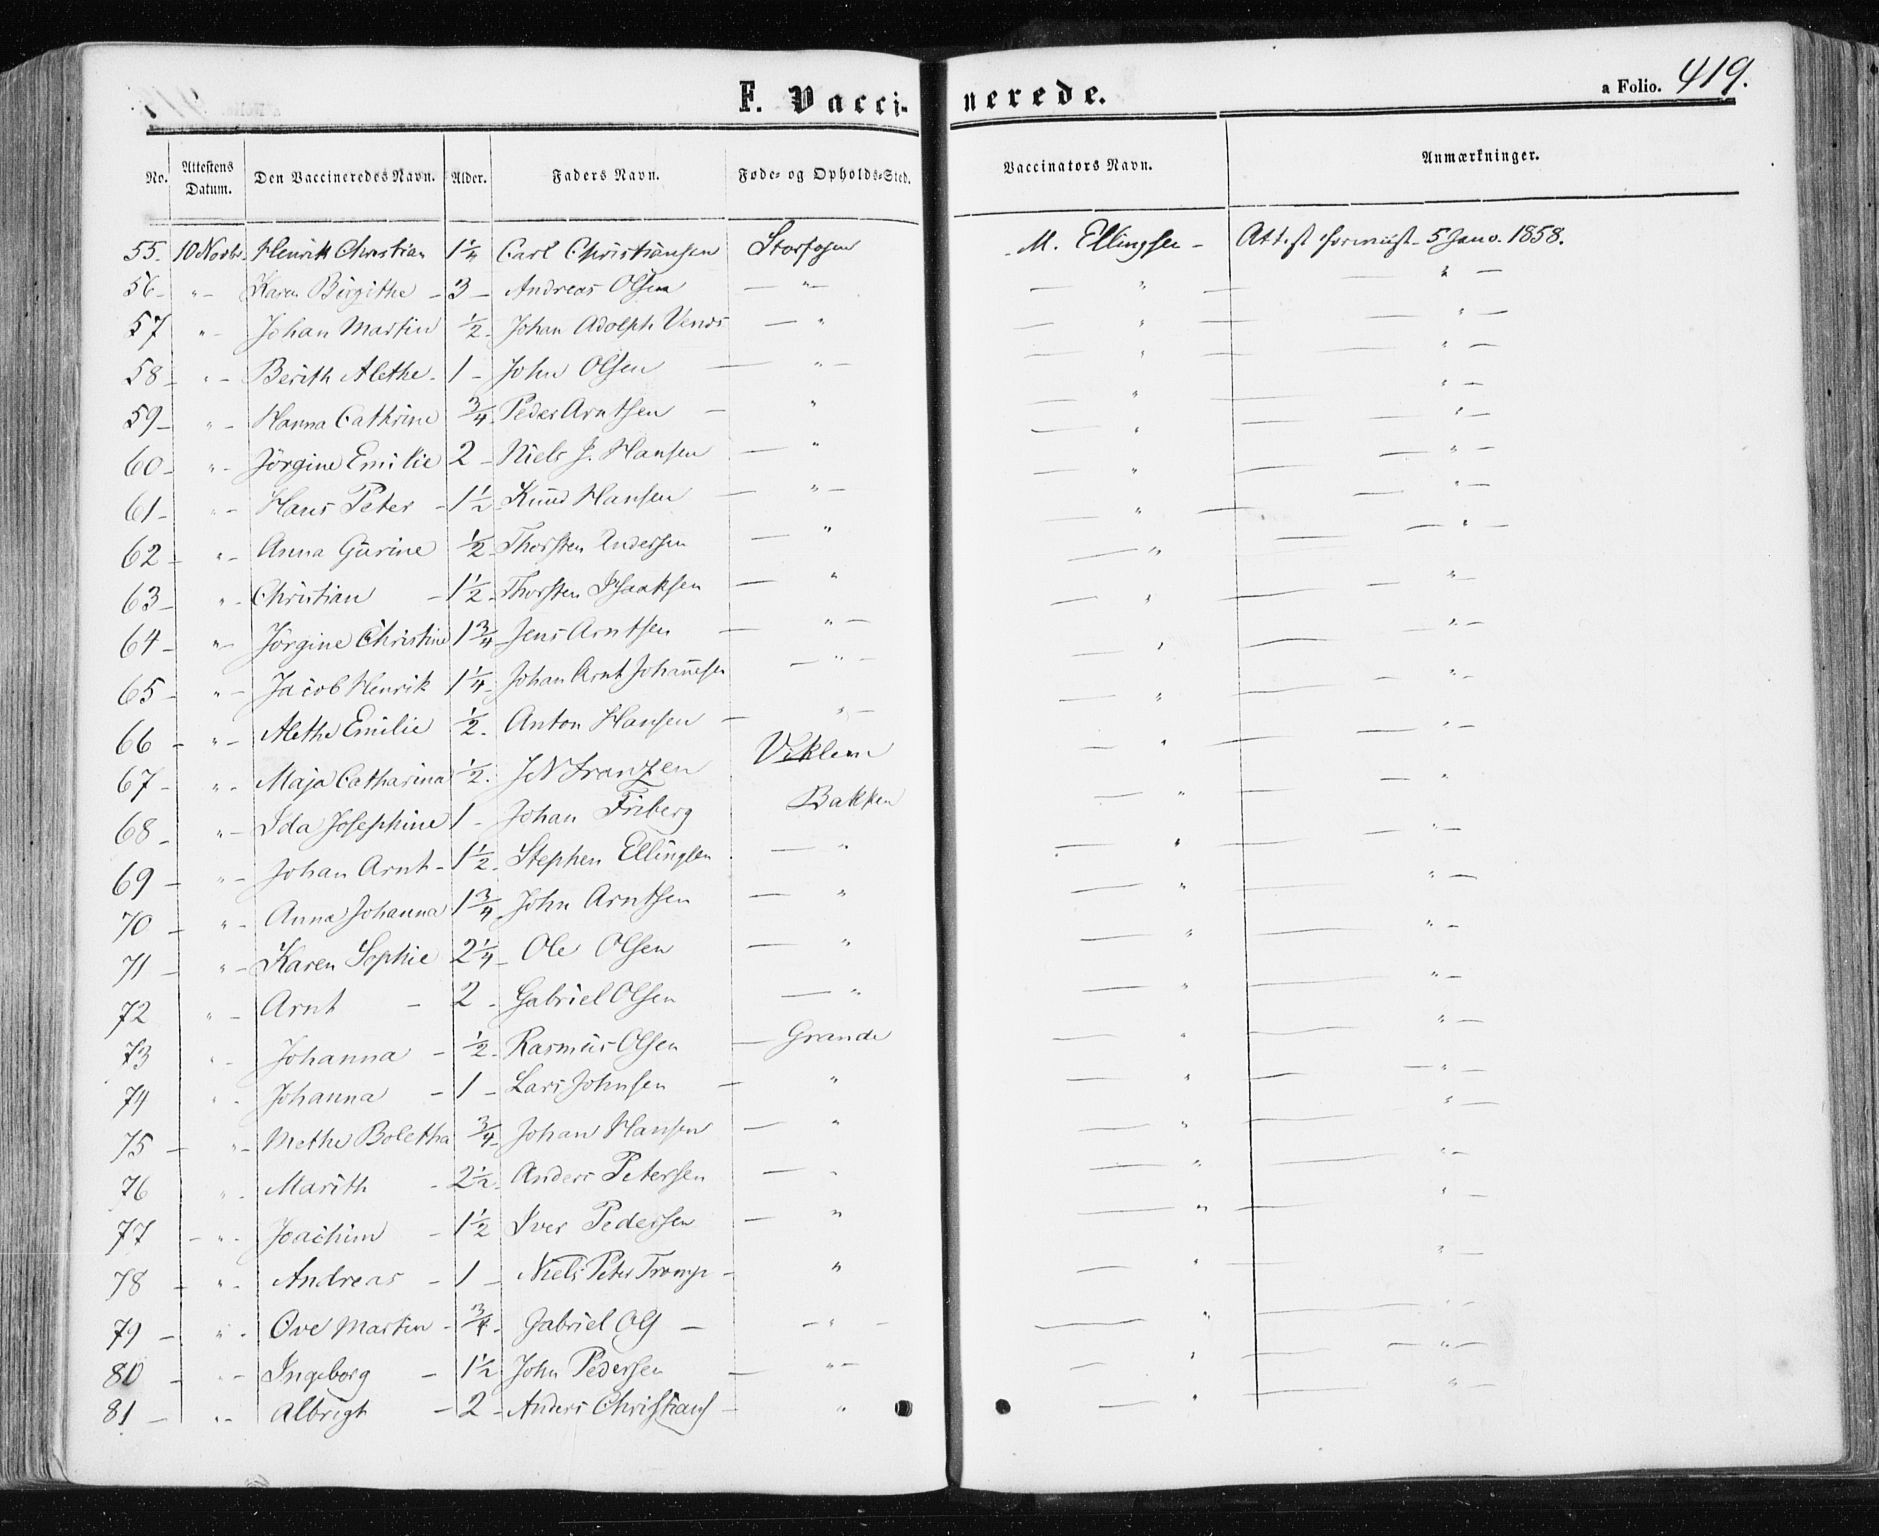 F. Vaccinerede.
a Folio. 419.
No. Attestens Datum. Den Vaccineredes Navn. Alder. Faders Navn. Føde- og Opholds-Sted. Vaccinators Navn. Anmærkninger.
55. 10 Novbr. Henrik Christian 1 1/4 Carl Christiansen Storfosen M. Ellingsen - Attest 5 Janv. 1858.
56 - " - Karen Birgithe - 3 - Andreas Olsen — " — — " — — " —
57 " - Johan Martin 1/2 - Johan Adolph — " — " — — " —
58 - " - Berith Alethe - 1 - John Olsen — " — — " — — " —
59 - " - Hanna Cathrine 3/4 - Peder Arntsen — " — " — — " —
60 - " - Jörgine Emilie 2 - Niels J. Hansen — " — " — — " —
61 - " - Hans Peter - 1 1/2 - Knud Hansen — " — — " — — " —
62 - " - Anna Gurine 1/2 - Thorsten Andersen — " — " — — " —
63 - " - Christian - 1 1/2 - Thorsten Isaaksen — " — " — — " —
64 - " - Jörgine Christine 1 3/4 - Jens Arntsen — " — — " — — " —
65 - " - Jacob Henrik 1 1/4 - Johan Arnt Johannesen — " — — " — — " —
66 - " - Alethe Emilie 1/2 - Anton Hansen — " — — " — — " —
67 - " - Maja Catharina 1/2 - J N Franzen Viklem — " — — " —
68 - " - Ida Josephine 1 - Johan Friberg Bakken — " — — "
69 - " - Johan Arnt - 1 1/2 - Stephen Ellingsen — " — " — — " —
70 - " - Anna Johanna 1 3/4 - John Arntsen — " — " — — " —
71 - " - Karen Sophie 2 1/4 - Ole Olsen — " — " — — " —
72 " - Arnt - 2 - Gabriel Olsen — " — " — — " —
73 " - Johanna - 1/2 - Rasmus Olsen — Grande — " — — " —
74 " - Johanna - 1 - Lars Johnsen — " — " — — " —
75 - " - Methe Boletha 3/4 - Johan Hansen — " — " — — " —
76 " - Marith - 2 1/2 - Anders Petersen — " — " — — " —
77 - " - Joachim - 1 1/2 Iver Pedersen — " — " — — " —
78 - " - Andreas - 1 - Niels Peter Tromp - " — " — — " —
79 - " - Ove Martin - 3/4 - Gabriel Ols — — " — — " — — " —
80 - " - Ingeborg - 1 1/2 John Pedersen — " — — " — — " —
81 - " - Albrigt - 2 - Anders Christians — " — " — — " —